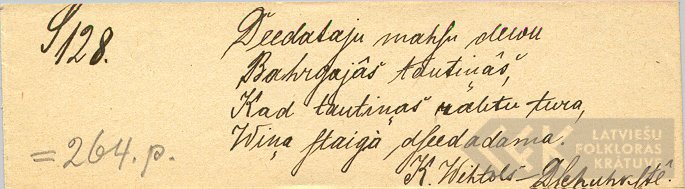 S128.
Dseedataju mahsu dewu
Bahrgajâs tautiņâs,
Kad tautiņas rahtu tura,
Wiņa staigà dseedadama.
= 264. p.
K. Wihtols Dschuhkstê.
LATVIEŠU
FOLKLORAS
KRĀTUVE